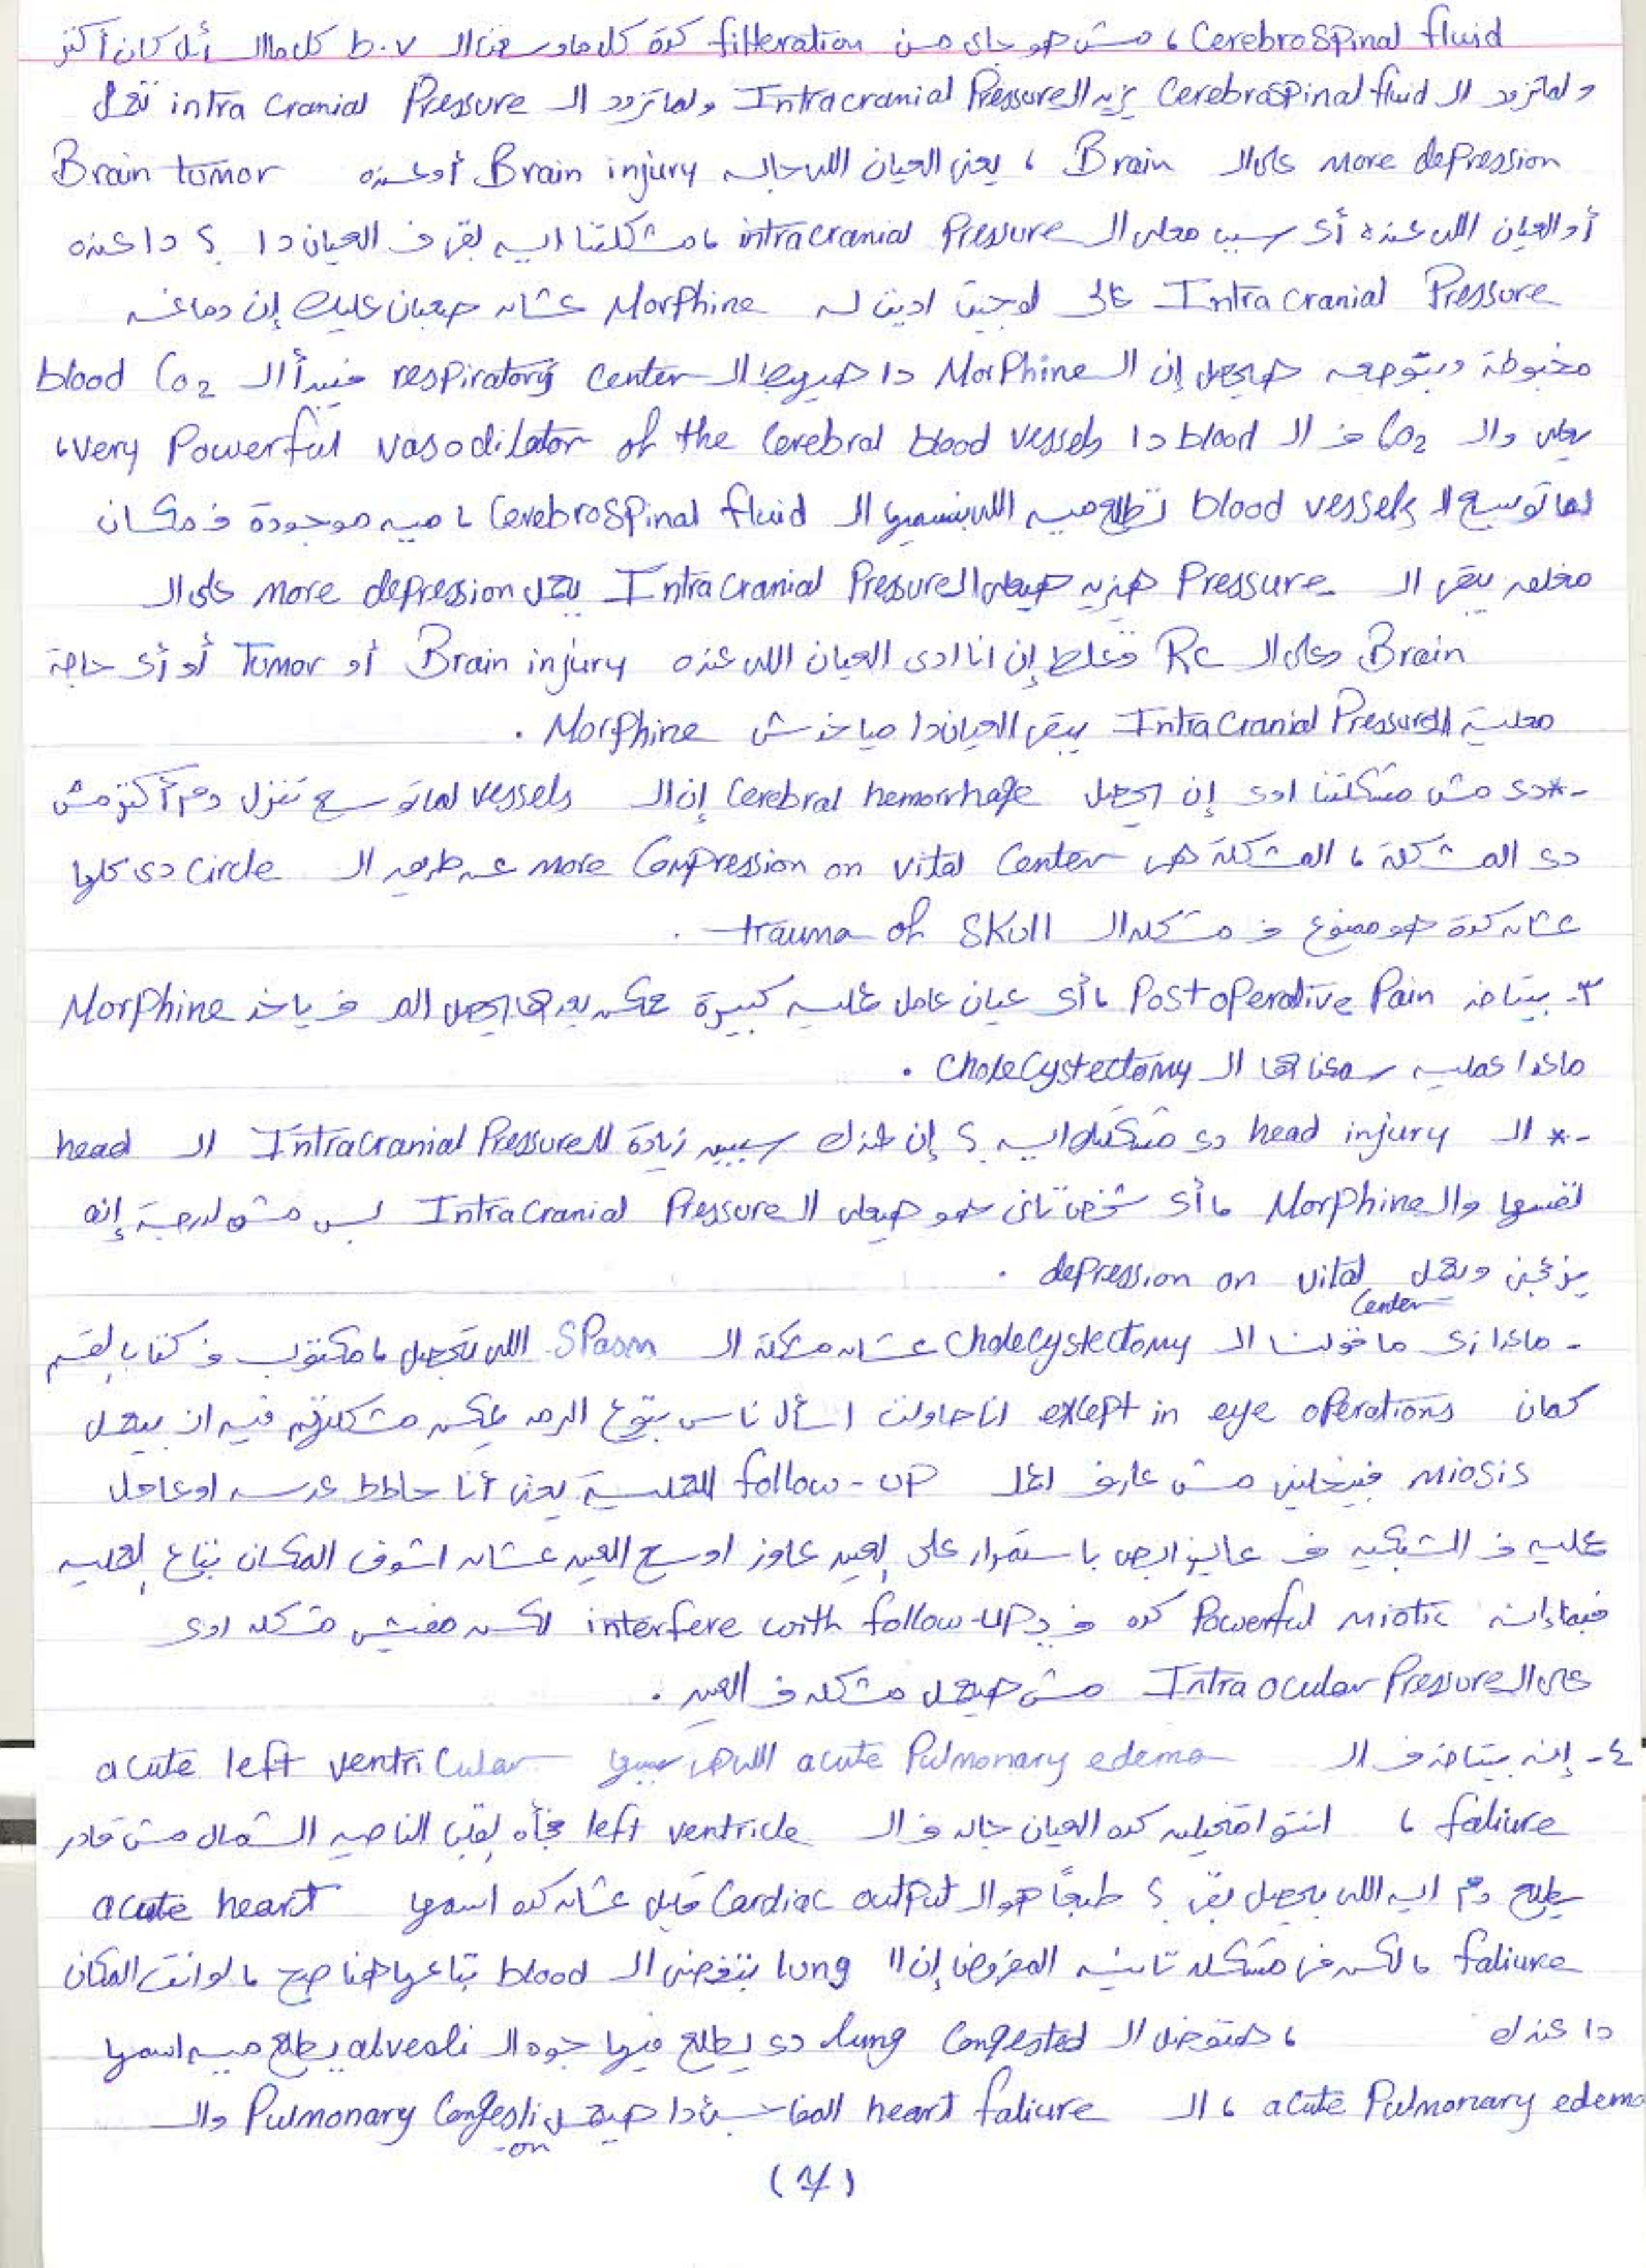 Cerebrospinal fluid ، مش هو جاى من filteration كدة كل ماوسعنا الـ b.v كل ماالسائل كان أكتر
ولما تزود الـ Cerebrospinal fluid يزيد الـ Intracranial Pressure ولما تزود الـ intra cranial Pressure تعمل
more depression على الـ Brain ، يعنى العيان اللى جاله Brain injury أو عنده Brain tumor
أو العيان اللى عنده أى سبب معلى الـ intracranial Pressure ، مشكلتنا ايه بقى فى العيان دا ؟ دا عنده
Intra cranial Pressure عالى لوجيت اديت له Morphine عشان صعبان عليك إن دماغه
مخبوطة وبتوجعه هيحصل إن الـ Morphine دا هيهبط الـ respiratory center فيبدأ الـ blood Co2
يعلى والـ Co2 فى الـ blood دا very Powerful vasodilator of the Cerebral blood vessels ،
لما توسع الـ blood vessels تطلع ميه اللى بنسميها الـ Cerebrospinal fluid ، ميه موجودة فى مكان
مغلق يبقى الـ Pressure هيزيد هيعلى الـ Intra Cranial Pressure يعمل more depression على الـ
Brain وعلى الـ Rc فغلط إن انا ادى العيان اللى عنده Brain injury أو Tumor أو أى حاجة
معلية الـ Intra Cranial Pressure يبقى العيان دا مياخدش Morphine .
-* دى مش مشكلتنا اوى إن يحصل Cerebral hemorrhage إن الـ vessels لما توسع تنزل دم أكتر مش
دى المشكلة ، المشكلة هى more Compression on vital Center عن طريق الـ Circle دى كلها
عشان كدة هو ممنوع فى مشكلة الـ trauma of skull .
٣- بيتاخد Post operative Pain ، أى عيان عامل عمليه كبيرة ممكن بعدها يحصل الم فـ ياخد Morphine
ماعدا عمليه سمعناها الـ Cholecystectomy .
-* الـ head injury دى مشكلته ايه ؟ إن عندك سببين زيادة للـ Intracranial Pressure الـ head
نفسها والـ Morphine ، أى شخص تانى هو هيعلى الـ Intra Cranial Pressure بس مش لدرجة إنه
يزعجنى ويعمل depression on vital Center .
- ماعدا زى ما قولت الـ Cholecystectomy عشان مشكلة الـ Spasm اللى تحصل ، مكتوب فى كتاب القسم
كمان except in eye operations انا حاولت اسأل ناس بتوع الرمد ممكن مشكلتهم فيه انه بيعمل
miosis فيخلينى مش عارف اعمل follow-up للعملية يعنى أنا حاطط عدسه او عامل
عمليه فى الشبكيه فـ عايز ابص باستمرار على العين عاوز اوسع العين عشان اشوف المكان بتاع العمليه
فبما انه Powerful miotic كده فـ دى interfere with follow-up لكن مفيش مشكله اوى
على الـ Intraocular Pressure مش هيعمل مشكله فى العين .
٤- إنه بيتاخد فى الـ acute Pulmonary edema اللى هى سببها acute left ventricular
faliure ، انتو متخيلين كده العيان جاله فى الـ left ventricle فجأه القلب الناحيه الشمال مش قادر
يطلع دم ايه اللى يحصل بقى ؟ طبعًا هو الـ Cardiac output قليل عشان كده اسمها acute heart
faliure ، لكن فى مشكله تانيه المفروض إن الـ lung بتفضى الـ blood بتاعها هنا صح ، لو انت المكان
دا عندك ، هتفضل الـ lung Congested دى يطلع فيها جوه الـ alveoli يطلع ميه اسمها
acute Pulmonary edema ، الـ heart faliure المفاجئ دا هيعمل Pulmonary Congestion والـ
(٧)